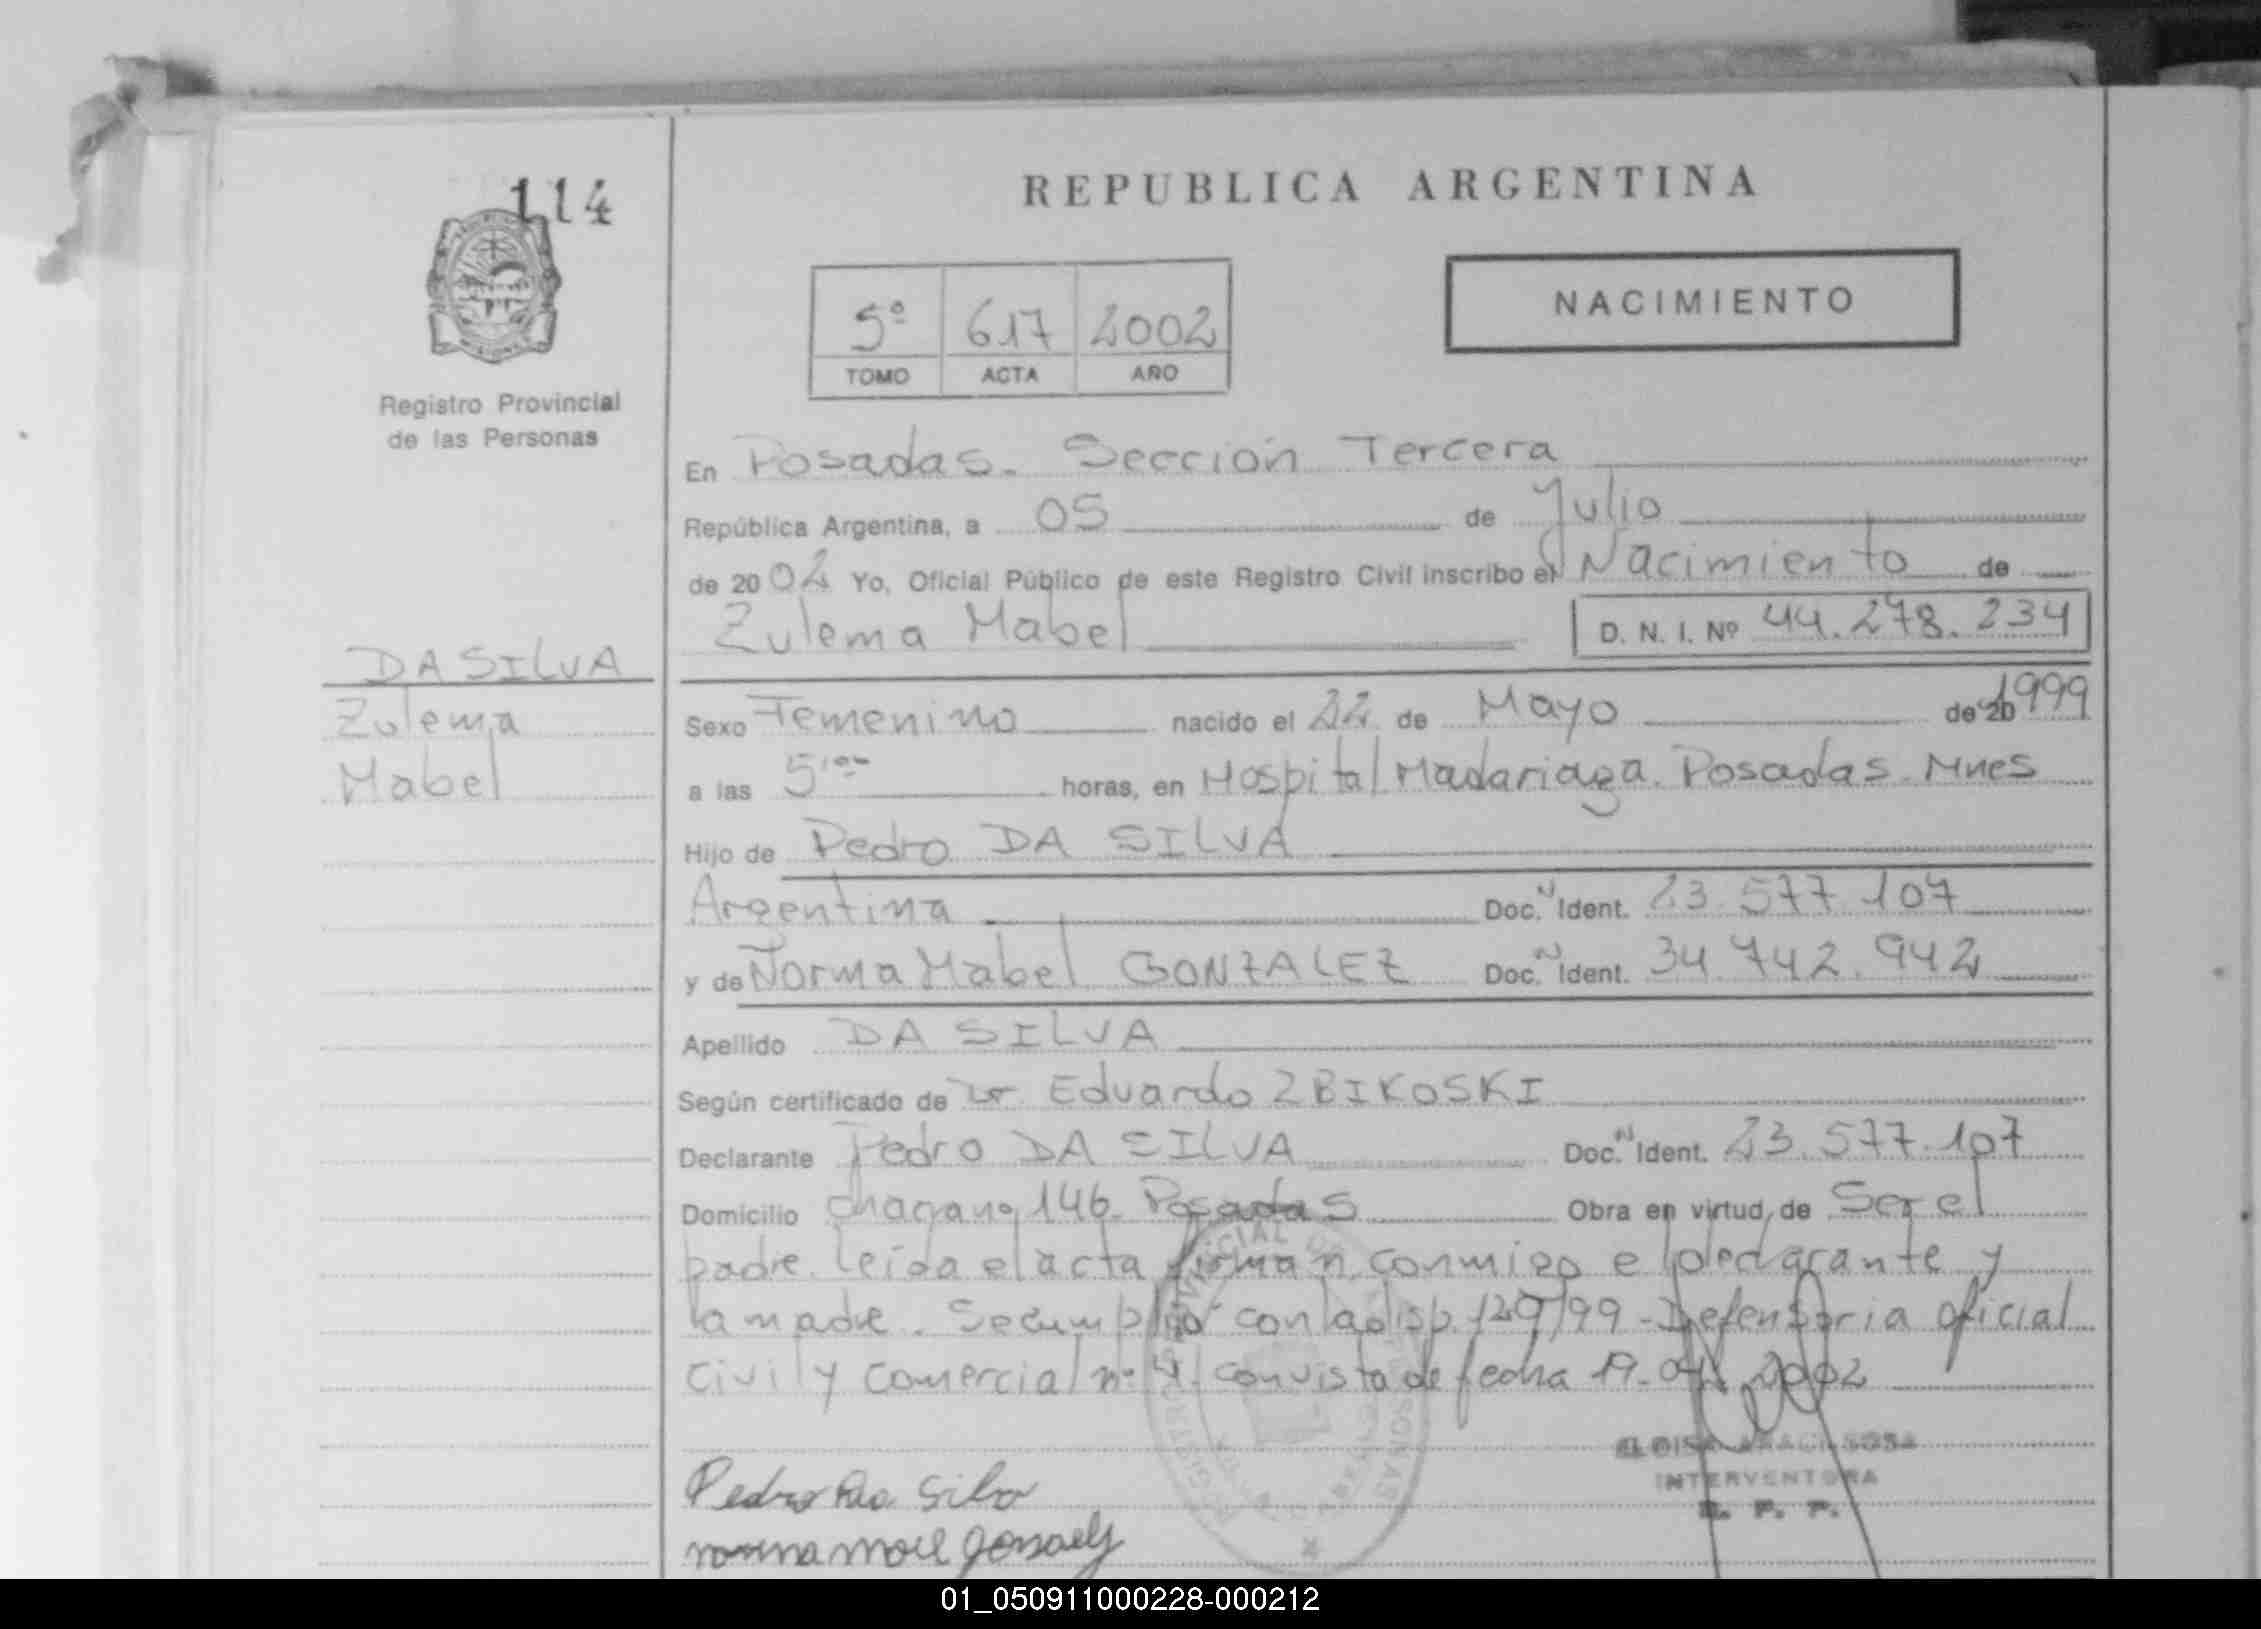 114
REPUBLICA ARGENTINA
NACIMIENTO
5º 617 2002
TOMO ACTA AÑO
Registro Provincial
de las Personas
En Posadas. Sección Tercera
República Argentina, a 05 de Julio
de 2002 Yo, Oficial Público de este Registro Civil inscribo el Nacimiento de
Zulema Mabel D. N. I. Nº 44.278.234
DA SILVA
Zulema
Mabel
Sexo Femenino nacido el 22 de Mayo de 20 1999
a las 5 horas, en Hospital Madariaga. Posadas. Mnes
Hijo de Pedro DA SILVA
Argentina Doc. Ident. 23.577.107
y de Norma Mabel GONZALEZ Doc. Ident. 34.742.942
Apellido DA SILVA
Según certificado de Dr. Eduardo ZBIKOSKI
Declarante Pedro DA SILVA Doc. Ident. 23.577.107
Domicilio 146. Posadas Obra en virtud de Ser el
padre. leída el acta firman conmigo el declarante y
la madre. Se cumplió con la disp. 129/99 - Defensoria oficial
Civil y Comercial nº 4. con vista de fecha 19. 2002
Pedro Da Silva
ELOISA ARACI SOSA
INTERVENTORA
R. P. P.
01_050911000228-000212